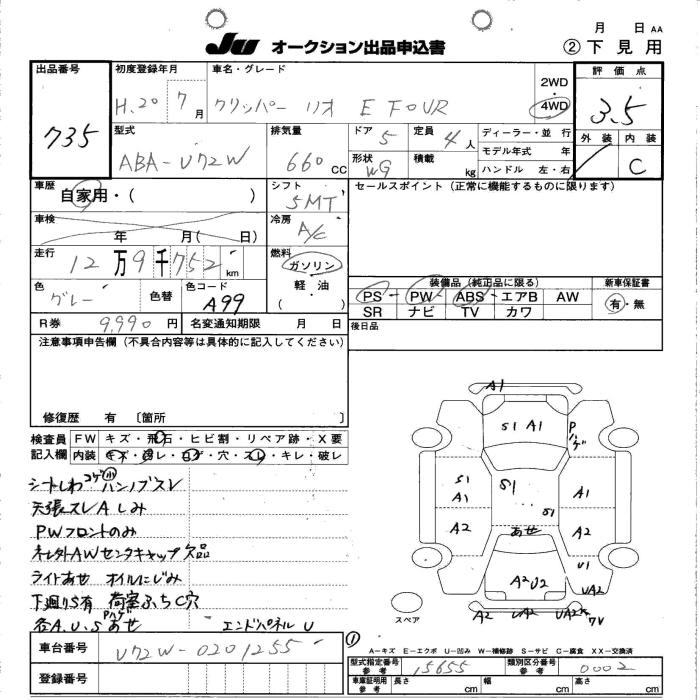 月 日 AA
JU オークション出品申込書 ② 下見用
出品番号 735
初度登録年月 H.20 7月
車名・グレード クリッパー リオ E FOUR
2WD
4WD
評価点 3.5
外装 内装 C
型式 ABA-U72W
排気量 660 CC
ドア 5
定員 4人
形状 WG
積載 kg
ディーラー・並行
モデル年式 年
ハンドル 左・右
車歴 自家用・( )
シフト 5MT
セールスポイント(正常に機能するものに限ります)
車検 年 月( 日)
冷房 A/C
走行 12万9千752km
燃料 ガソリン
軽油
( )
色 グレー 色替
色コード A99
装備品(純正品に限る)
PS PW ABS エアB AW
SR ナビ TV カワ
新車保証書
有・無
R券 9,990円
名変通知期限 月 日
後日品
注意事項申告欄(不具合内容等は具体的に記入してください)
修復歴 有 〔箇所 〕
検査員記入欄
FW キズ・飛石・ヒビ割・リペア跡・X要
内装 キズ・汚レ・コゲ・穴・スレ・キレ・破レ
シートしわ コゲ小 ハンノブスレ
天張スレAしみ
PWフロントのみ
ネレ外AWセンタキャップ欠品
ライトあせ オイルにじみ
下廻りS有 荷室ふちC穴
各A.U.S Pハゲ あせ エンドパネルU
A1
S1 A1
Pハゲ
S1
A1
S1
S1
A1
A2
あせ
A2
U1
A2U2
UA2
A2 UA2 UA2 ワV
スペア
①
A-キズ E-エクボ U-凹み W-補修跡 S-サビ C-腐食 XX-交換済
車台番号 U72W-0201255
型式指定番号 参考 15655
類別区分番号 参考 0002
登録番号
車庫証明用 参考 長さ 幅 高さ